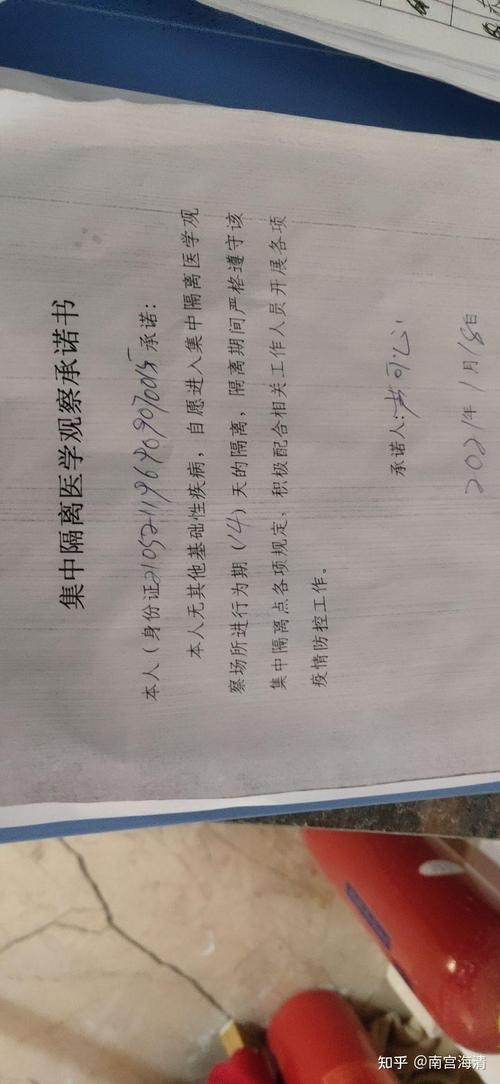 集中隔离医学观察承诺书
本人（身份证 承诺：
本人无其他基础性疾病，自愿进入集中隔离医学观
察场所进行为期（14）天的隔离，隔离期间严格遵守该
集中隔离点各项规定，积极配合相关工作人员开展各项
疫情防控工作。
承诺人：
2021年1月18日
知乎 @南宫海清